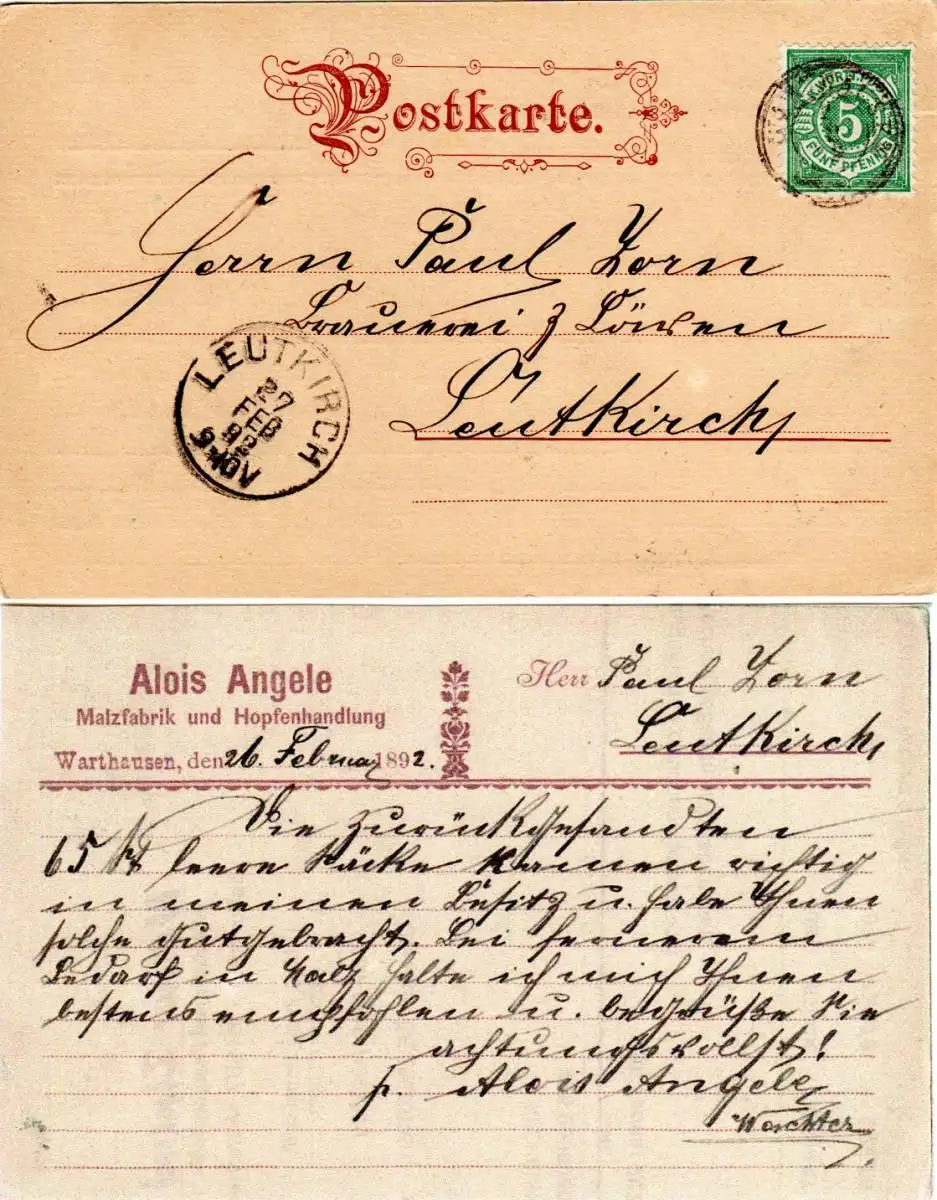 Postkarte.
K. WÜRTT. POST
5
FÜNF PFENNIG
Herrn Paul Zorn
Brauerei z Löwen
Leutkirch
LEUTKIRCH
27
FEB
92
Alois Angele
Malzfabrik und Hopfenhandlung
Warthausen, den 26. Februar 1892.
Herr Paul Zorn
Leutkirch
Die zurückgesandten
65 St leere Säcke kamen richtig
in meinen Besitz u. habe Ihnen
solche gutgebracht. Bei fernerem
Bedarf in Malz halte ich mich Ihnen
bestens empfohlen u. begrüße Sie
achtungsvollst!
p. Alois Angele